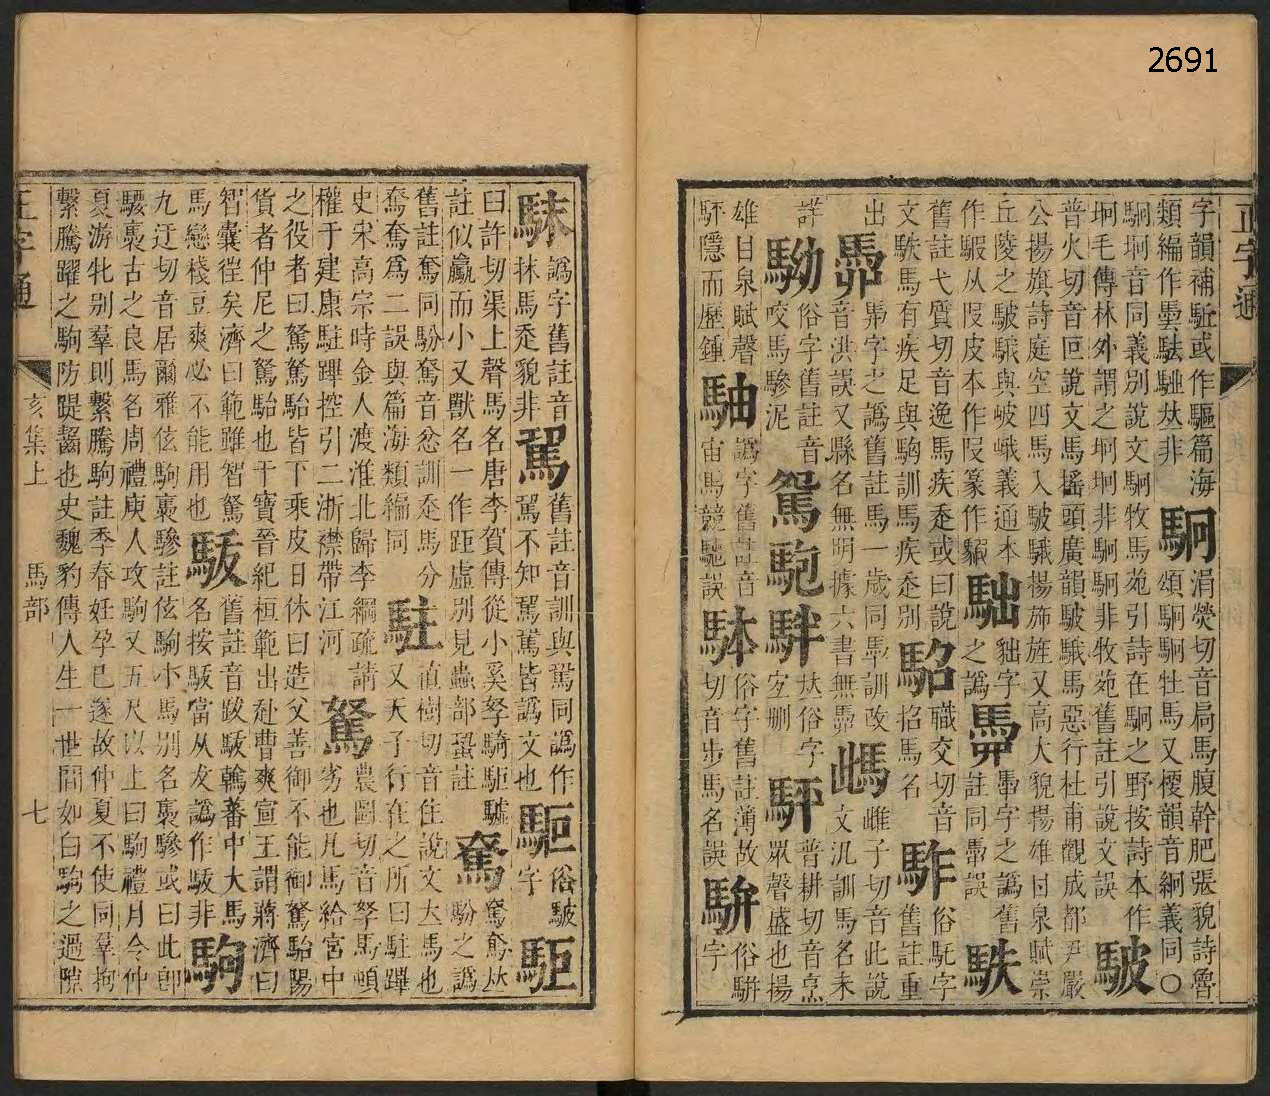 2691
正字通
字韻補駈或作驅篇海
類編作䮓駐𠀤非駉涓熒切音扃馬腹幹肥張貌詩魯
頌駉駉牡馬又梗韻音絅義同〇
駉坰音同義別說文駉牧馬苑引詩在駉之野按詩本作
坰毛傳林外謂之坰坰非駉駉非牧苑舊註引說文誤駊
普火切音叵說文馬搖頭廣韻駊騀馬惡行杜甫觀成都尹嚴
公揚旗詩庭空四馬入駊騀揚旆旌又高大貌揚雄甘泉賦崇
丘陵之駊騀與岥峨義通本
作騢从叚皮本作叚篆作騢䭹貀字之譌馬字之譌舊註同馬誤駃
舊註弋質切音逸馬疾走或曰說
文駃馬有疾足與駒訓馬疾走別䮓職交切音招馬名䮓俗駹字舊註重
出
馬字之譌舊註馬一歲同馬訓改音洪誤又縣名無明據六書無馬
雌子切音此說文汎訓馬名未詳
駒俗字舊註音咬馬驂泥
駕䮀駢𠀤俗字宜刪駍普耕切音烹眾聲盛也揚
雄甘泉賦聲駍隱而歷鍾
駎譌字舊註音宙馬競馳誤䮀俗字舊註薄故切音步馬名誤駢俗騈字
䭾譌字舊註音抹馬走貌非䮀舊註音訓與駕同譌作駕不知駕駕皆譌文也駏俗駊字駏
臼許切渠上聲馬名唐李賀傳從小奚孥騎駏驉
註似驘而小又獸名一作距虛別見蟲部蛩註䭿
舊註奮同䭿奮音忿訓走馬分
奮奮爲二誤與篇海類編同駐直樹切音住說文大馬也
又天子行在之所曰駐蹕
史宋高宗時金人渡淮北歸李綱疏請
權于建康駐蹕控引二浙襟帶江河駑農圖切音孥馬頓
劣也凡馬給宮中
之役者曰駑駑駘皆下乘皮日休曰造父善御不能御駑駘陽
貨者仲尼之駑駘也干寶晉紀桓範出赴曹爽宣王謂蔣濟曰
智囊徃矣濟曰範雖智駑
馬戀棧豆爽必不能用也䮂舊註音跋䮂䮧蕃中大馬
名按䮂當从犮譌作䮂非駒
九迂切音居爾雅伭駒褭驂註伭駒小馬別名褭驂或曰此卽
騕褭古之良馬名周禮庾人攻駒又五尺以上曰駒禮月令仲
夏游牝别羣則縶騰駒註季春妊孕已遂故仲夏不使同羣拘
縶騰躍之駒防踶齧也史魏豹傳人生一世間如白駒之過隙
正字通 亥集上 馬部 七